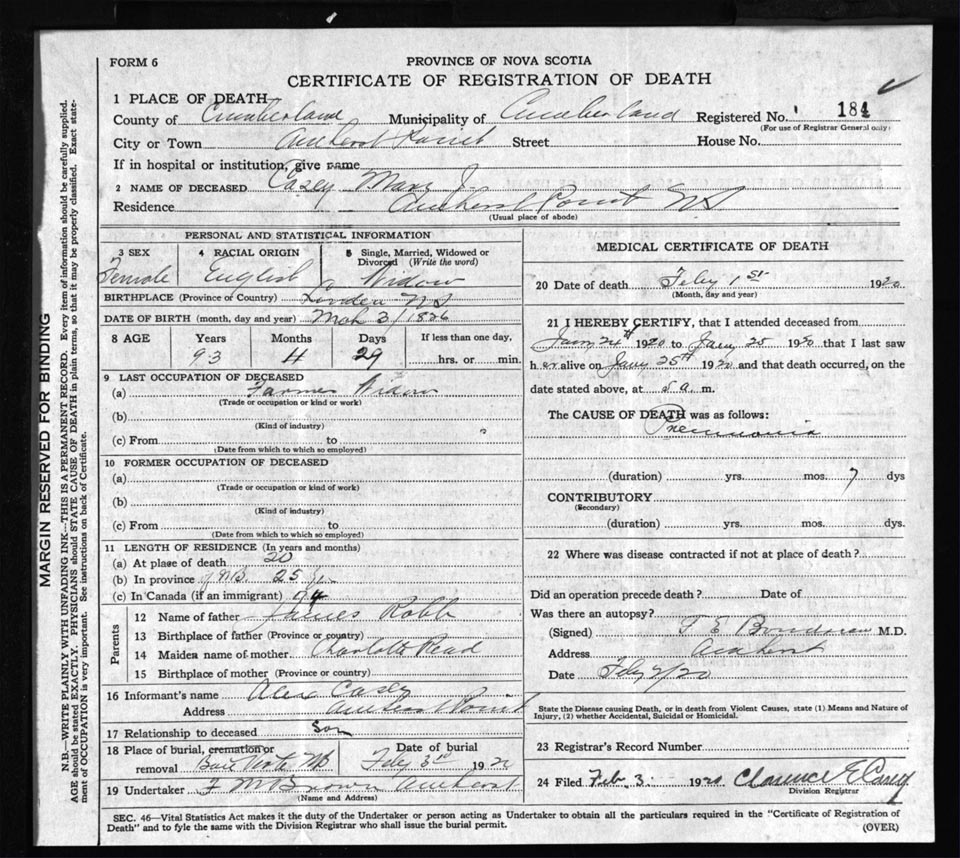 FORM 6
PROVINCE OF NOVA SCOTIA
CERTIFICATE OF REGISTRATION OF DEATH
1 PLACE OF DEATH
County of Cumberland Municipality of Cumberland Registered No. 184
(For use of Registrar General only)
City or Town Amherst Point Street House No.
If in hospital or institution, give name
2 NAME OF DECEASED Casey Mary J.
Residence Amherst Point NS
(Usual place of abode)
PERSONAL AND STATISTICAL INFORMATION
3 SEX Female
4 RACIAL ORIGIN English
5 Single, Married, Widowed or Divorced (Write the word) Widow
BIRTHPLACE (Province or Country) Linden NS
DATE OF BIRTH (month, day and year) Mch 3/1826
8 AGE Years Months Days If less than one day,
93 4 29 hrs. or min.
9 LAST OCCUPATION OF DECEASED
(a) Farmer Widow
(Trade or occupation or kind or work)
(b)
(Kind of industry)
(c) From to
(Date from which to which so employed)
10 FORMER OCCUPATION OF DECEASED
(a)
(Trade or occupation or kind of work)
(b)
(Kind of industry)
(c) From to
(Date from which to which so employed)
11 LENGTH OF RESIDENCE (In years and months)
(a) At place of death 20
(b) In province 25
(c) In Canada (if an immigrant) 94
Parents
12 Name of father James Robb
13 Birthplace of father (Province or country)
14 Maiden name of mother Charlotte Read
15 Birthplace of mother (Province or country)
16 Informant's name Alex Casey
Address Amherst Point
17 Relationship to deceased Son
18 Place of burial, cremation or removal Baie Verte NB
Date of burial Feby 3rd 1920
19 Undertaker F McBrown Amherst
(Name and Address)
MEDICAL CERTIFICATE OF DEATH
20 Date of death Feby 1st 1920
(Month, day and year)
21 I HEREBY CERTIFY, that I attended deceased from
Jany 24th 1920 to Jany 25 1920 that I last saw
h er alive on Jany 25th 1920 and that death occurred, on the
date stated above, at a. m.
The CAUSE OF DEATH was as follows:
Pneumonia
(duration) yrs. mos. 7 dys
CONTRIBUTORY
(Secondary)
(duration) yrs. mos. dys.
22 Where was disease contracted if not at place of death?
Did an operation precede death? Date of
Was there an autopsy?
(Signed) M.D.
Address Amherst
Date Feby 2/20
State the Disease causing Death, or in death from Violent Causes, state (1) Means and Nature of
Injury, (2) whether Accidental, Suicidal or Homicidal.
23 Registrar's Record Number
24 Filed Feb. 3. 1920 Clarence E Casey
Division Registrar
SEC. 46—Vital Statistics Act makes it the duty of the Undertaker or person acting as Undertaker to obtain all the particulars required in the "Certificate of Registration of
Death" and to fyle the same with the Division Registrar who shall issue the burial permit.
(OVER)
MARGIN RESERVED FOR BINDING
N.B.—WRITE PLAINLY WITH UNFADING INK—THIS IS A PERMANENT RECORD. Every item of information should be carefully supplied.
AGE should be stated EXACTLY. PHYSICIANS should STATE CAUSE OF DEATH in plain terms, so that it may be properly classified. Exact state-
ment of OCCUPATION is very important. See instructions on back of Certificate.